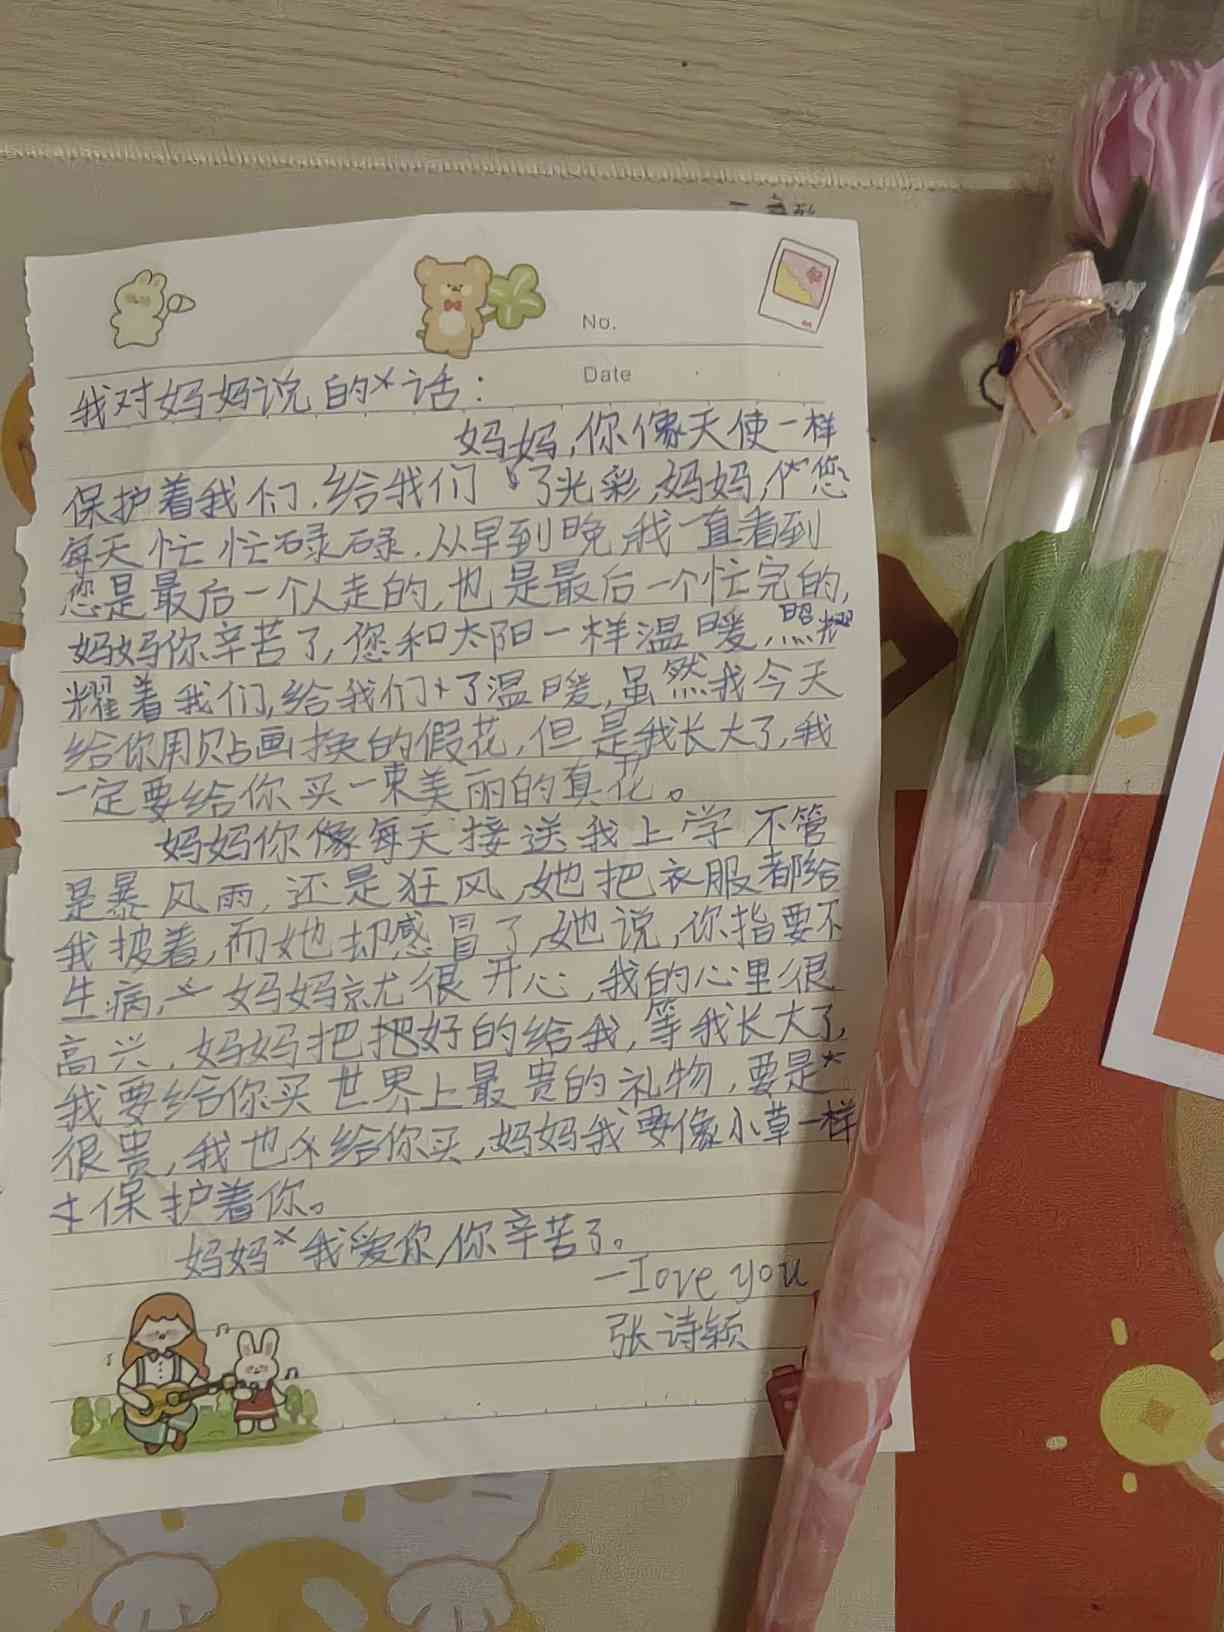 No.
Date
我对妈妈说的话：
妈妈,你像天使一样
保护着我们,给我们了光彩,妈妈,您
每天忙忙碌碌,从早到晚,我一直看到
您是最后一个人走的,也是最后一个忙完的,
妈妈你辛苦了,您和太阳一样温暖,照耀
耀着我们,给我们了温暖,虽然我今天
给你用贴画换的假花,但是我长大了,我
一定要给你买一束美丽的真花。
妈妈你像每天接送我上学不管
是暴风雨,还是狂风,她把衣服都给
我披着,而她却感冒了,她说,你指要不
生病,妈妈就很开心,我的心里很
高兴,妈妈把把好的给我,等我长大了,
我要给你买世界上最贵的礼物,要是
很贵,我也给你买,妈妈我要像小草一样
保护着你。
妈妈我爱你,你辛苦了。
—Iove you
张诗颖